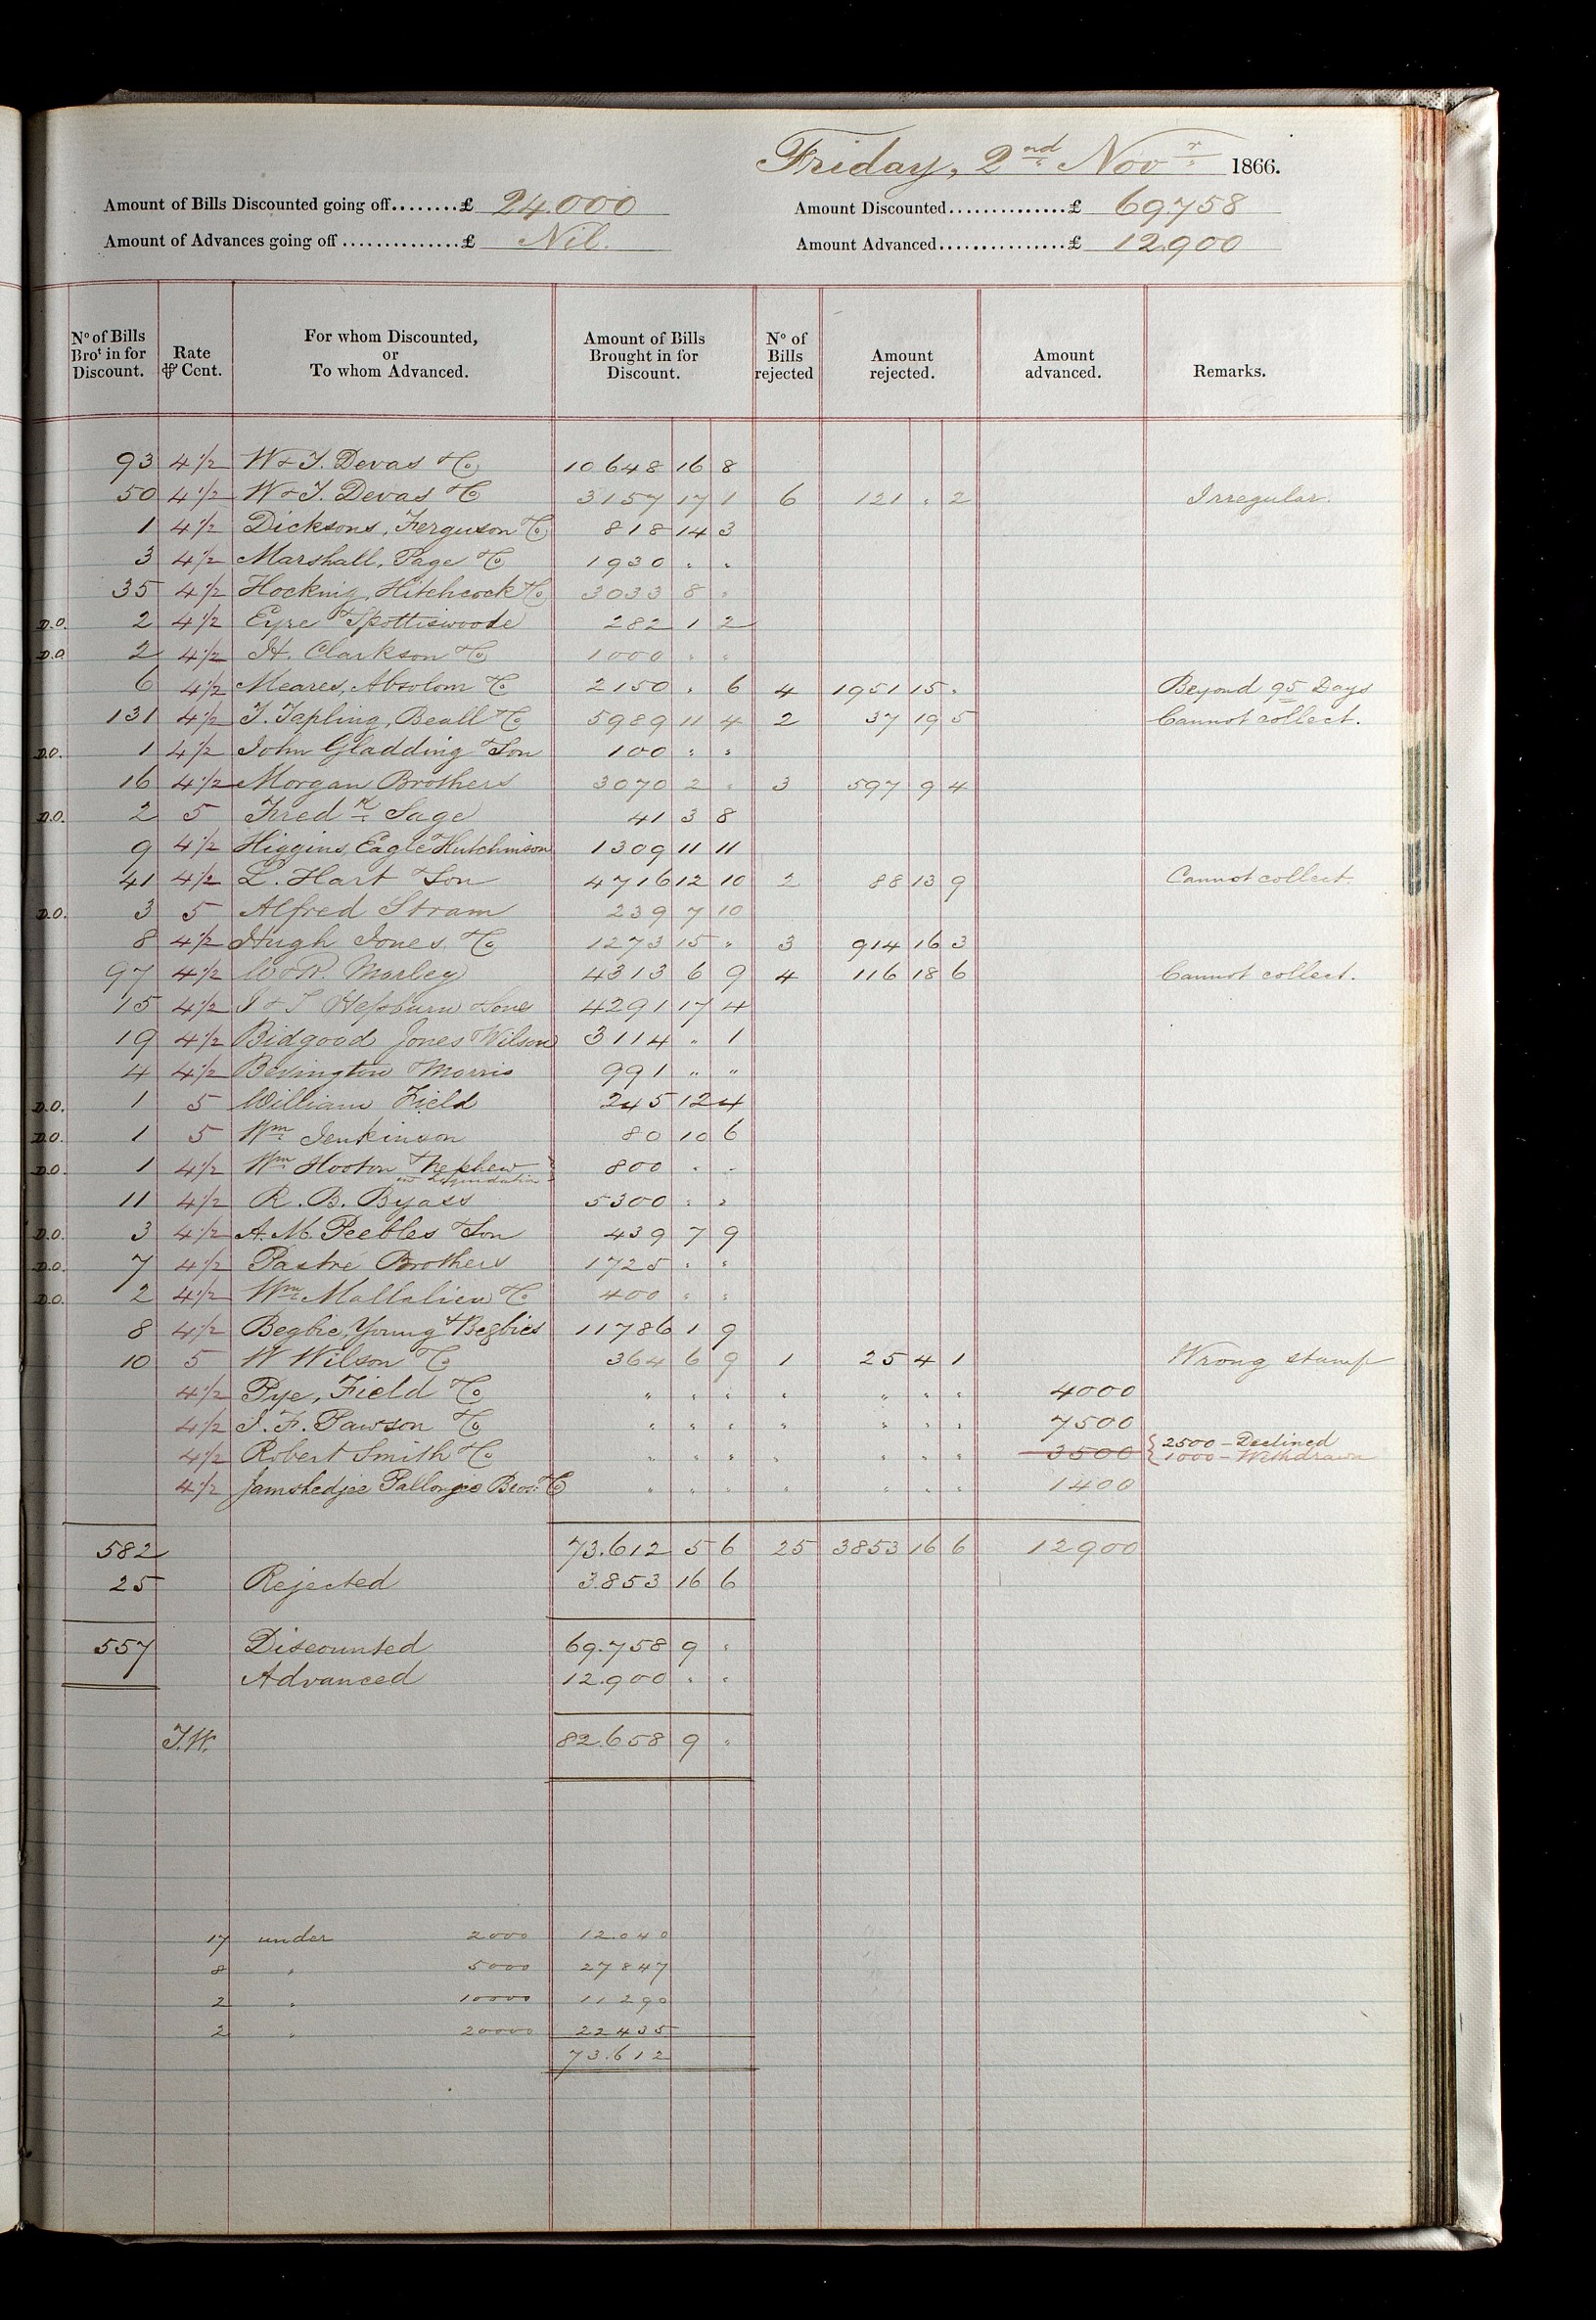 Friday, 2nd Novr 1866.
Amount of Bills Discounted going off........£ 24.000 Amount Discounted..............£ 69758
Amount of Advances going off ..............£ Nil. Amount Advanced...............£ 12.900
No of Bills Brot in for Discount. Rate ⅌ Cent. For whom Discounted, or To whom Advanced. Amount of Bills Brought in for Discount. No of Bills rejected Amount rejected. Amount advanced. Remarks.
93 4½ W & T. Devas & Co 10648 16 8
50 4½ W & T. Devas & C 3157 17 1 6 121 " 2 Irregular.
1 4½ Dicksons, Ferguson & Co 818 14 3
3 4½ Marshall, Page & Co 1930 " "
35 4½ Hocking, Hitchcock & Co 3033 8 "
D.O. 2 4½ Eyre & Spottiswoode 282 1 2
D.O. 2 4½ H. Clarkson & Co 1000 " "
6 4½ Meares, Absolom & Co 2150 " 6 4 1951 15 " Beyond 95 Days
131 4½ T. Tapling, Beall & Co 5989 11 4 2 37 19 5 Cannot collect.
D.O. 1 4½ John Gladding & Son 100 " "
16 4½ Morgan Brothers 3070 2 " 3 597 9 4
D.O. 2 5 Fredk Sage 41 3 8
9 4½ Higgins, Eagle & Hutchinson 1309 11 11
41 4½ L. Hart & Son 4716 12 10 2 88 13 9 Cannot collect.
D.O. 3 5 Alfred Stram 239 7 10
8 4½ Hugh Jones, & Co 1273 15 " 3 914 16 3
97 4½ W & R. Morley 4313 6 9 4 116 18 6 Cannot collect.
15 4½ J & T Hepburn & Sons 4291 17 4
19 4½ Bidgood Jones & Wilson 3114 " 1
4 4½ Bevington & Morris 991 " "
D.O. 1 5 William Field 245 12 4
D.O. 1 5 Wm Jenkinson 80 10 6
D.O. 1 4½ Wm Hooton & Nephew 800 " "
in Liquidation
11 4½ R. B. Byass 5300 " "
D.O. 3 4½ A. M. Peebles & Son 439 7 9
D.O. 7 4½ Pastré Brothers 1725 " "
D.O. 2 4½ Wm Mallalieu & C 400 " "
8 4½ Begbie, Young & Begbies 11786 1 9
10 5 W Wilson & Co 364 6 9 1 25 4 1 Wrong stamp
4½ Pye, Field & Co " " " " " " " 4000
4½ J. F. Pawson & Co " " " " " " " 7500
4½ Robert Smith & Co " " " " " " " 3500 { 2500 – Declined
1000 – Withdrawn
4½ Jamshedjee Pallonjee Bros: & Co " " " " " " " 1400
582 73.612 5 6 25 3853 16 6 12900
25 Rejected 3.853 16 6
557 Discounted 69.758 9 "
Advanced 12.900 " "
T.W. 82.658 9 "
17 under 2000 12.040
8 " 5000 27847
2 " 10000 11290
2 " 20000 22435
73.612